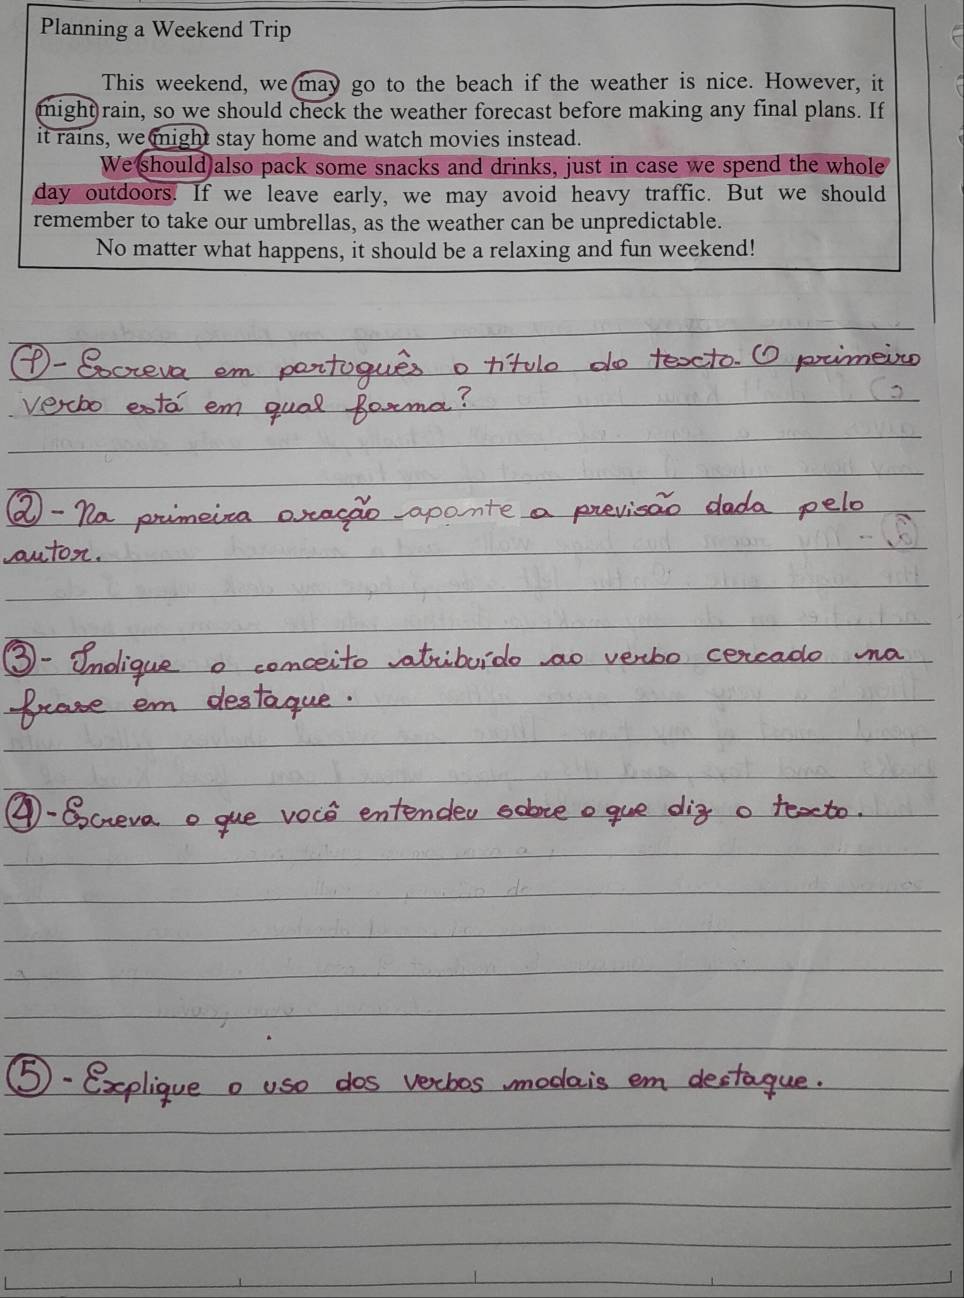 Planning a Weekend Trip
This weekend, we may go to the beach if the weather is nice. However, it
might rain, so we should check the weather forecast before making any final plans. If
it rains, we might stay home and watch movies instead.
We should also pack some snacks and drinks, just in case we spend the whole
day outdoors. If we leave early, we may avoid heavy traffic. But we should
remember to take our umbrellas, as the weather can be unpredictable.
No matter what happens, it should be a relaxing and fun weekend!
1 - Escreva em português o título do texto. O primeiro
verbo está em qual forma?
2 - Na primeira oração aponte a previsão dada pelo
autor.
3 - Indique o conceito atribuído ao verbo cercado na
frase em destaque.
4 - Escreva o que você entendeu sobre o que diz o texto.
5 - Explique o uso dos verbos modais em destaque.